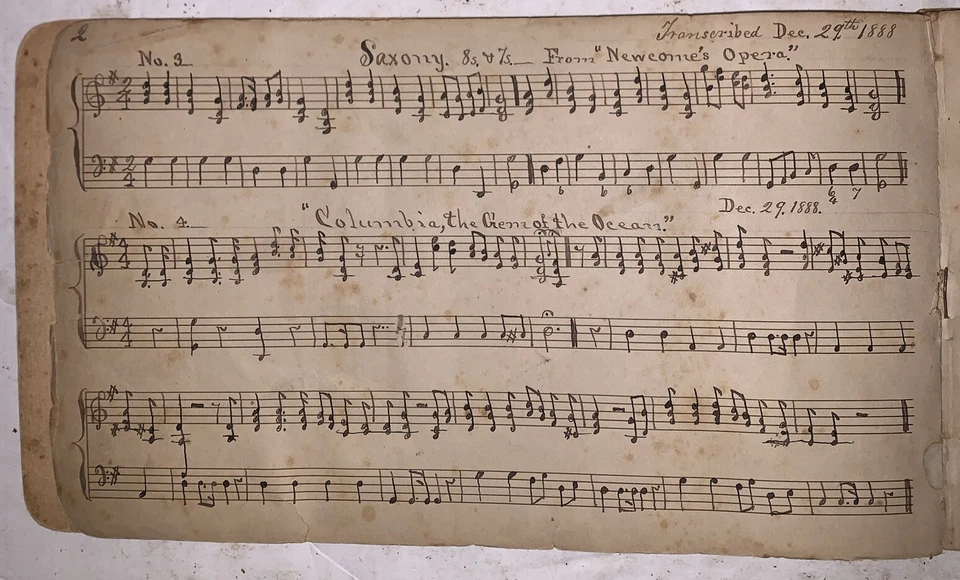 2
Transcribed Dec. 29th 1888
No. 3 Saxony. 8s. & 7s. — From "Newcome's Opera."
2
4
2
4
6 6 6 6 7
4
Dec. 29. 1888.
No. 4. "Columbia, the Gem of the Ocean."
4
4
4
4